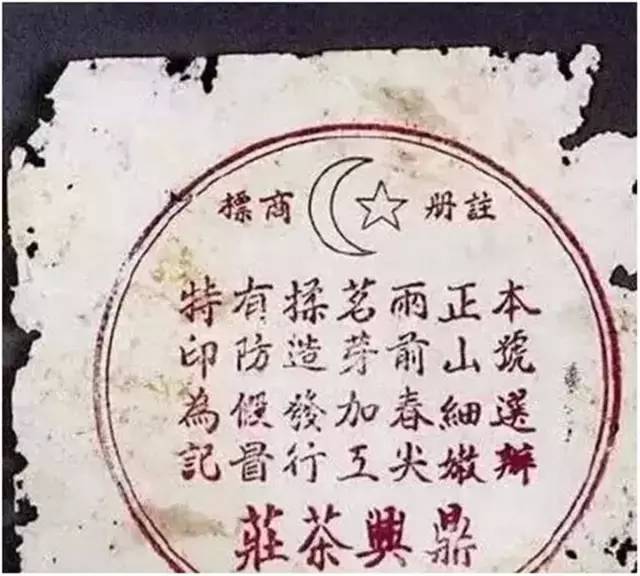 註册 商標
本號選辦
正山細嫩
雨前春尖
茗芽加工
揉造發行
有防假冒
特印為記
鼎興茶莊